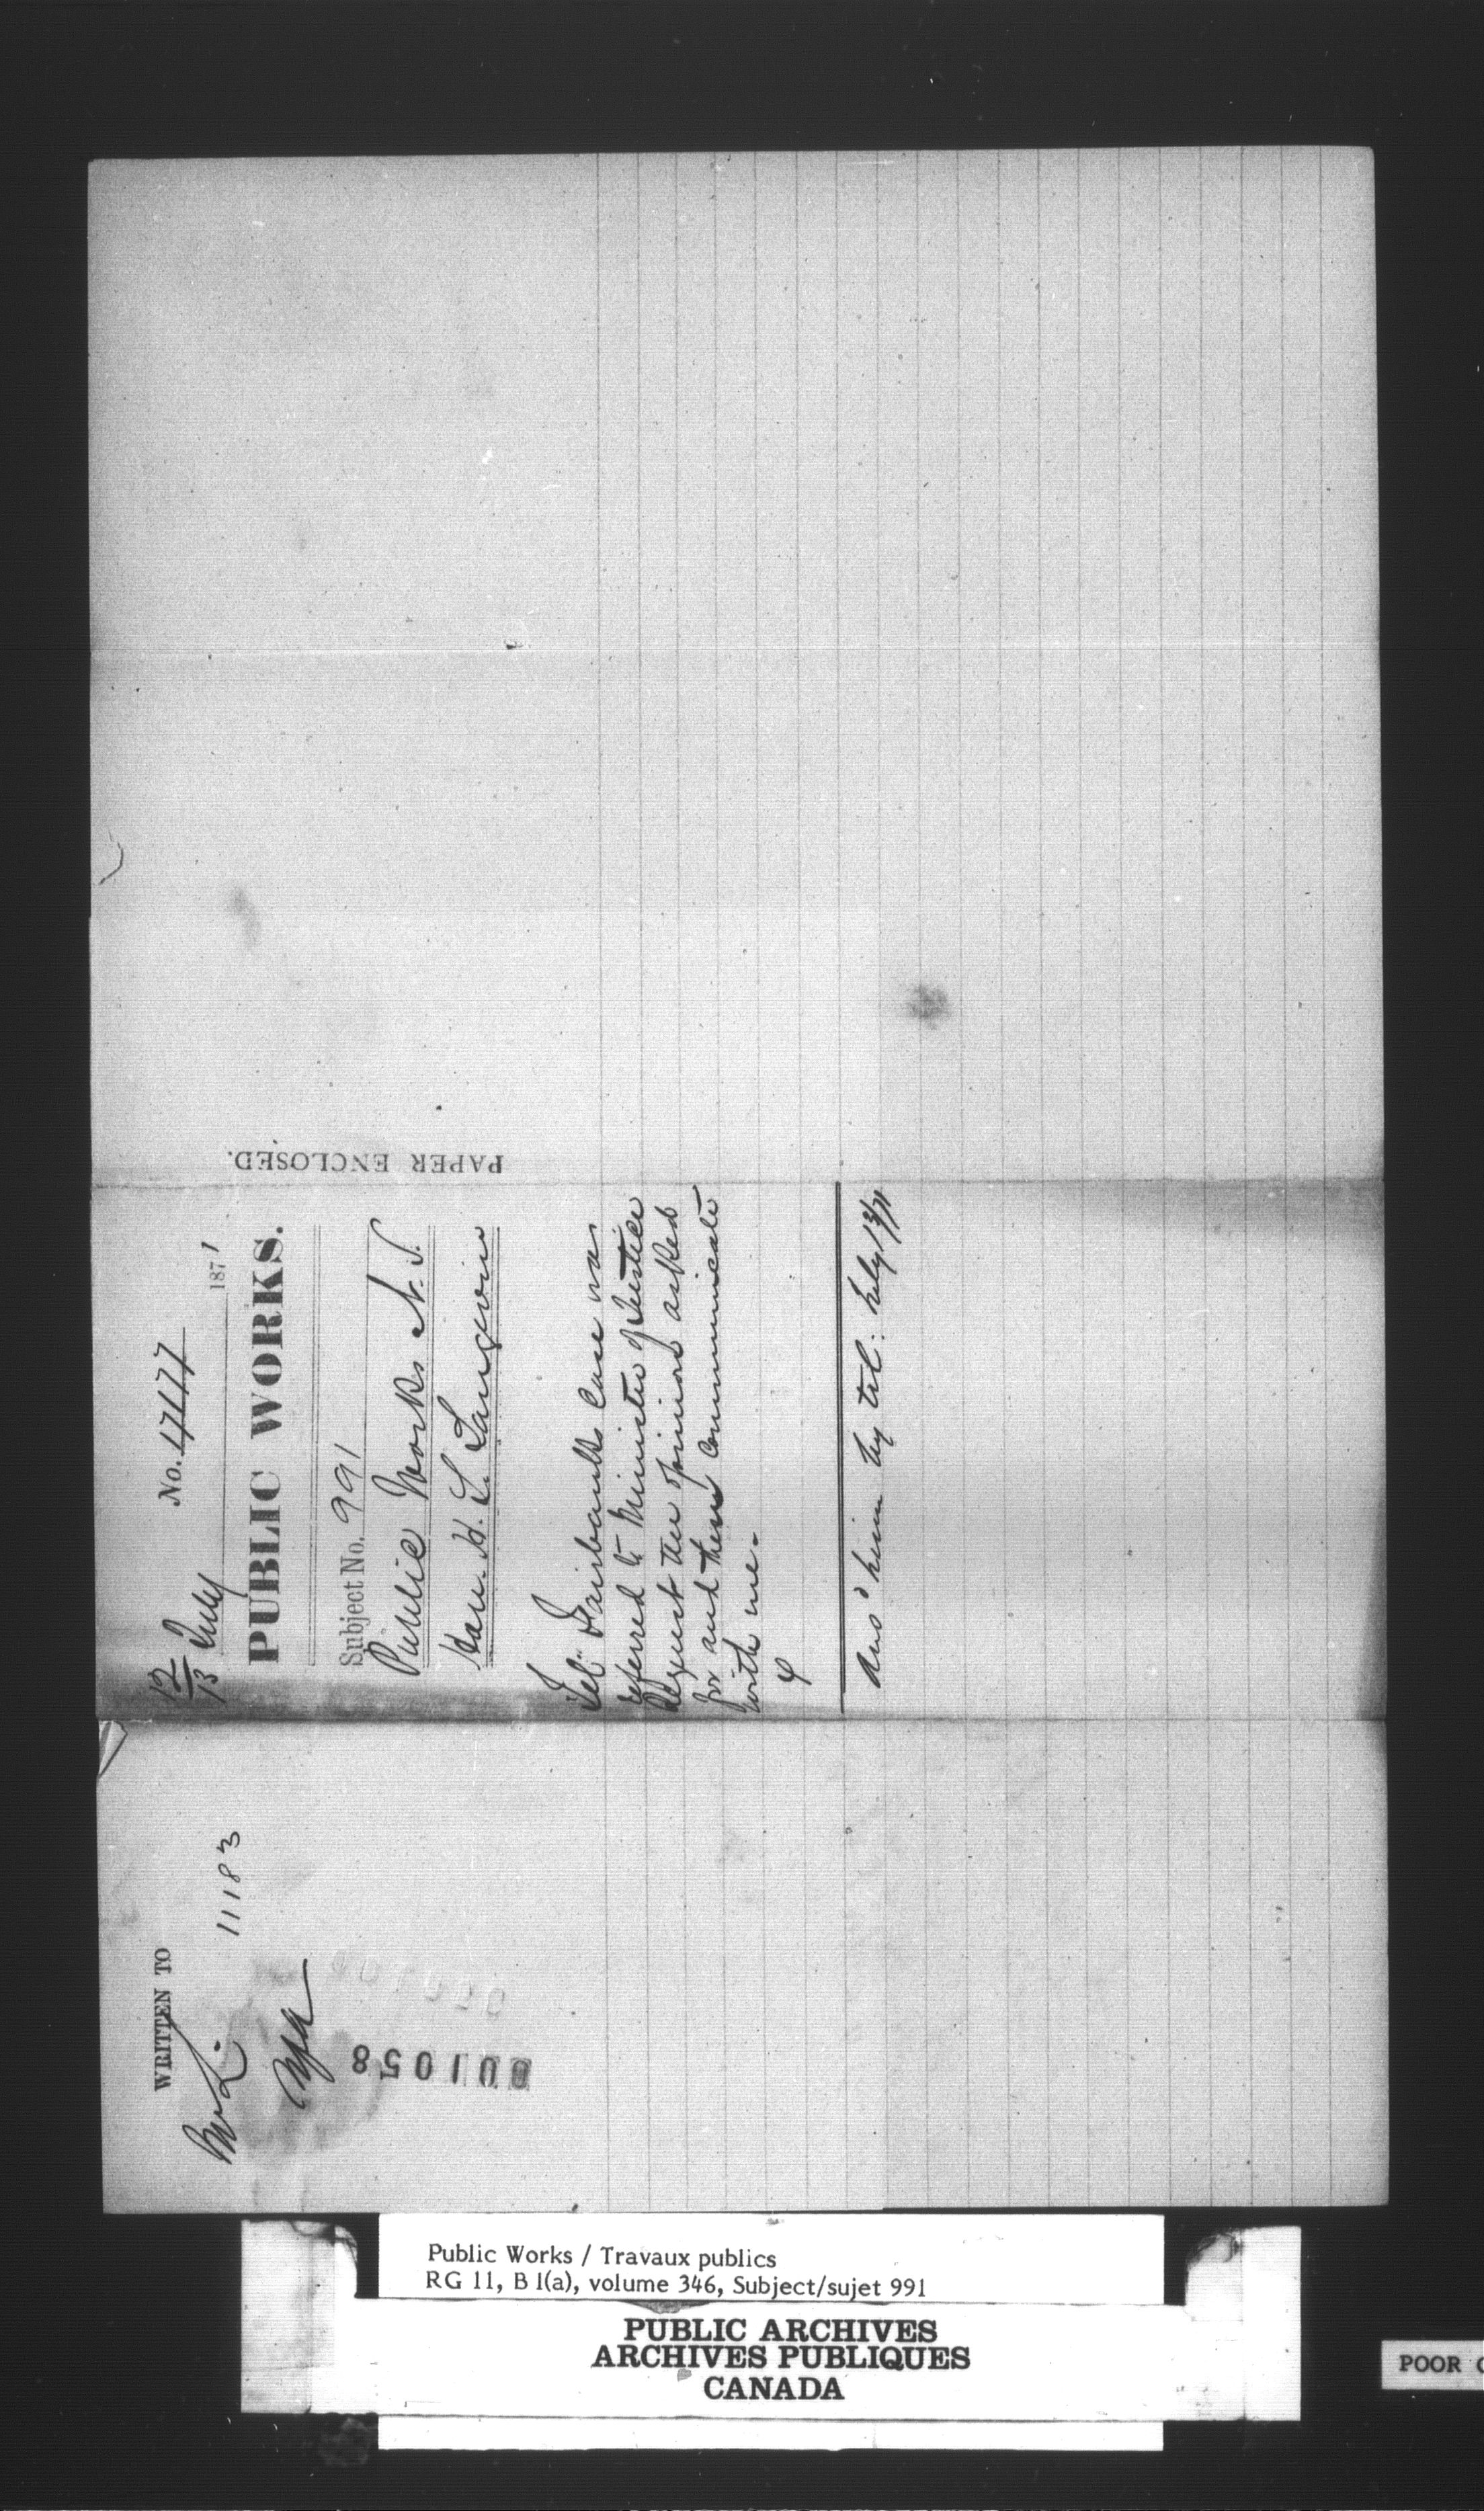 No. 17177
12
13 July 1871
PUBLIC WORKS.
Subject No. 991
Public Works N. S.
Hon. H. L. Langevin
Tel: Fairbanks Case was
referred to Minister of Justice
Request the opinions asked
for and then communicate
with me.
Ansd him by tel: July 13/71
PAPER ENCLOSED.
WRITTEN TO
11183
001058
Public Works / Travaux publics
RG 11, B 1(a), volume 346, Subject/sujet 991
PUBLIC ARCHIVES
ARCHIVES PUBLIQUES
CANADA
POOR